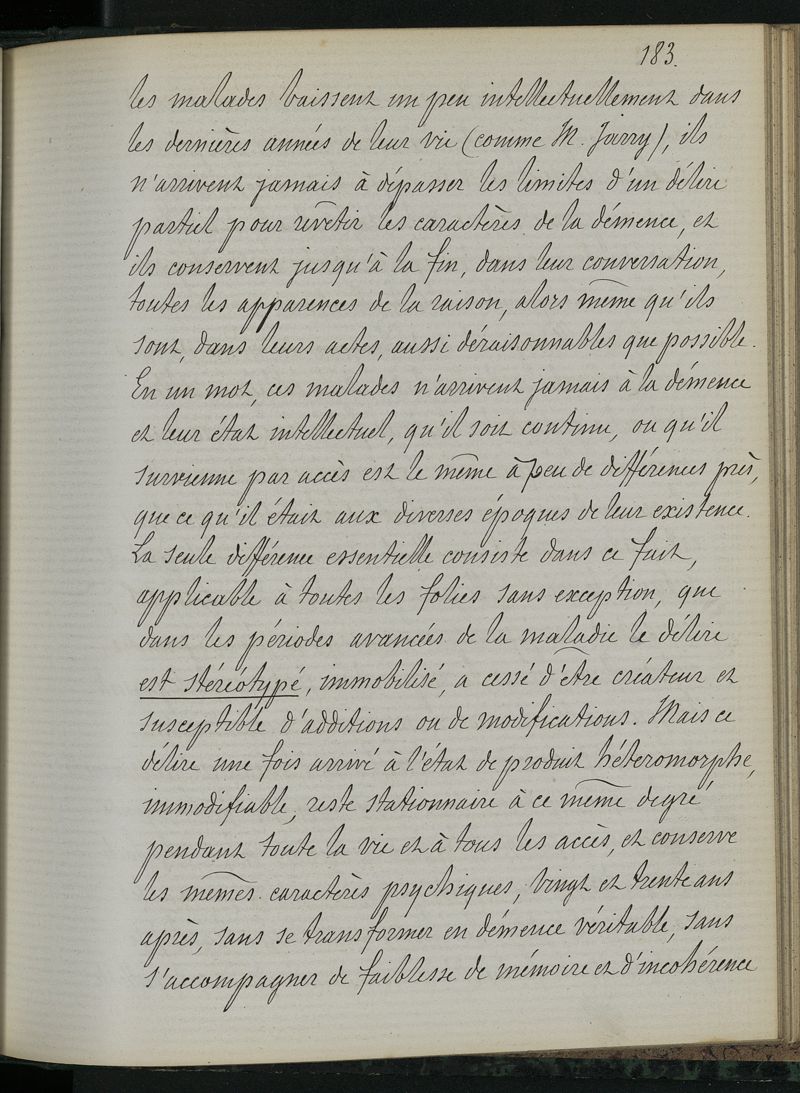 183.
les malades baissent un peu intellectuellement dans
les dernières années de leur vie (comme M. Jarry), ils
n'arrivent jamais à dépasser les limites d'un délire
partiel pour revêtir les caractères de la démence, et
ils conservent jusqu'à la fin, dans leur conversation,
toutes les apparences de la raison, alors même qu'ils
sont, dans leurs actes, aussi déraisonnables que possible.
En un mot, ces malades n'arrivent jamais à la démence
et leur état intellectuel, qu'il soit continu, ou qu'il
survienne par accès est le même à peu de différences près,
que ce qu'il était aux diverses époques de leur existence.
La seule différence essentielle consiste dans ce fait,
applicable à toutes les folies sans exception, que
dans les périodes avancées de la maladie le délire
est stéréotypé, immobilisé, a cessé d'être créateur et
susceptible d'additions ou de modifications. Mais ce
délire une fois arrivé à l'état de produit hétéromorphe,
immodifiable, reste stationnaire à ce même degré
pendant toute la vie et à tous les accès, et conserve
les mêmes caractères psychiques, vingt et trente ans
après, sans se transformer en démence véritable, sans
s'accompagner de faiblesse de mémoire et d'incohérence